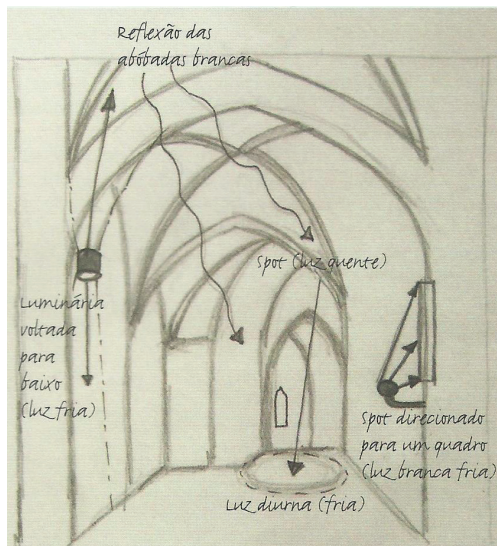 Reflexão das
abóbadas brancas
Spot (luz quente)
Luminária
voltada
para
baixo
(luz fria)
Spot direcionado
para um quadro
(luz branca fria)
Luz diurna (fria)